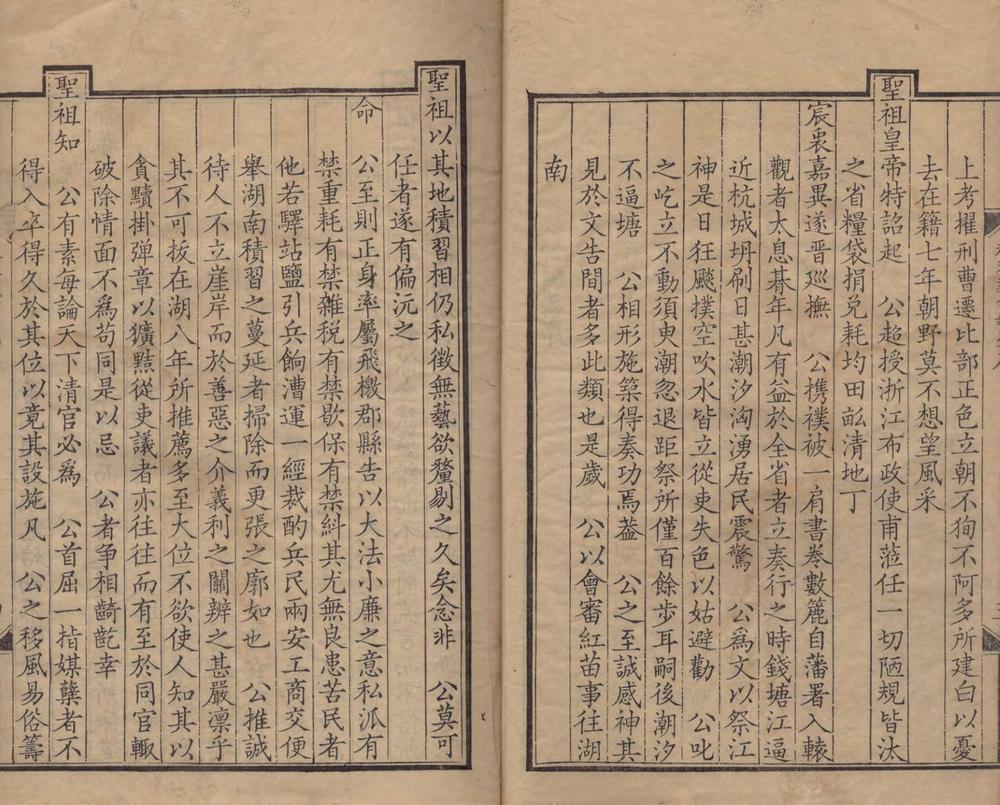 上考擢刑曹遷比部正色立朝不狥不阿多所建白以憂
去在籍七年朝野莫不想望風采
聖祖皇帝特詔起　公超授浙江布政使甫蒞任一切陋規皆汰
之省糧袋捐兌耗均田畝清地丁
宸衷嘉異遂晉巡撫　公携襆被一肩書卷數簏自藩署入轅
觀者太息朞年凡有益於全省者立奏行之時錢塘江逼
近杭城坍刷日甚潮汐洶湧居民震驚　公爲文以祭江
神是日狂飈撲空吹水皆立從吏失色以姑避勸　公叱
之屹立不動須臾潮忽退距祭所僅百餘步耳嗣後潮汐
不逼塘　公相形施築得奏功焉葢　公之至誠感神其
見於文告間者多此類也是歲　公以會審紅苗事往湖
南
聖祖以其地積習相仍私徵無藝欲釐剔之久矣念非　公莫可
任者遂有偏沅之
命　公至則正身率屬飛檄郡縣告以大法小廉之意私派有
禁重耗有禁雜税有禁歇保有禁糾其尤無良患苦民者
他若驛站鹽引兵餉漕運一經裁酌兵民兩安工商交便
舉湖南積習之蔓延者掃除而更張之廓如也　公推誠
待人不立崖岸而於善惡之介義利之關辨之甚嚴凛乎
其不可拔在湖八年所推薦多至大位不欲使人知其以
貪黷掛彈章以獷黠從吏議者亦往往而有至於同官輒
破除情面不爲苟同是以忌　公者争相齮齕幸
聖祖知　公有素每論天下清官必爲　公首屈一指媒孽者不
得入卒得久於其位以竟其設施凡　公之移風易俗籌